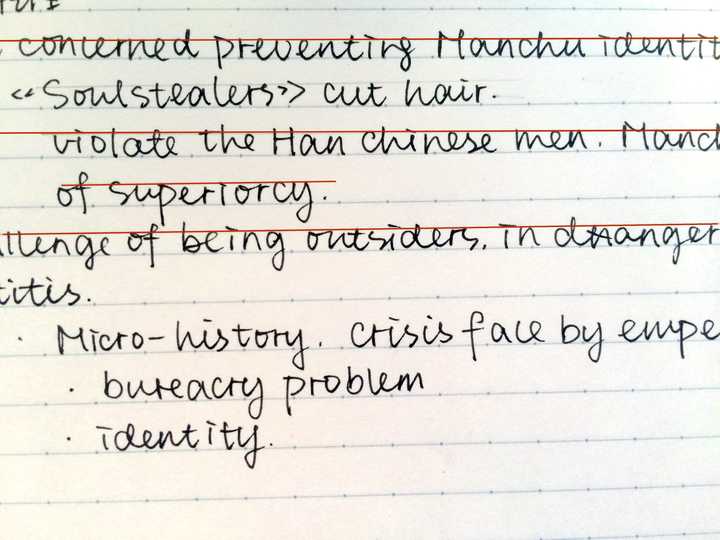 concerned preventing Manchu identit
<<Soulstealers>> cut hair.
violate the Han chinese men. Manch
of superiorcy.
llenge of being outsiders, in danger
titis.
· Micro-history. crisis face by empe
· bureacry problem
· identity.